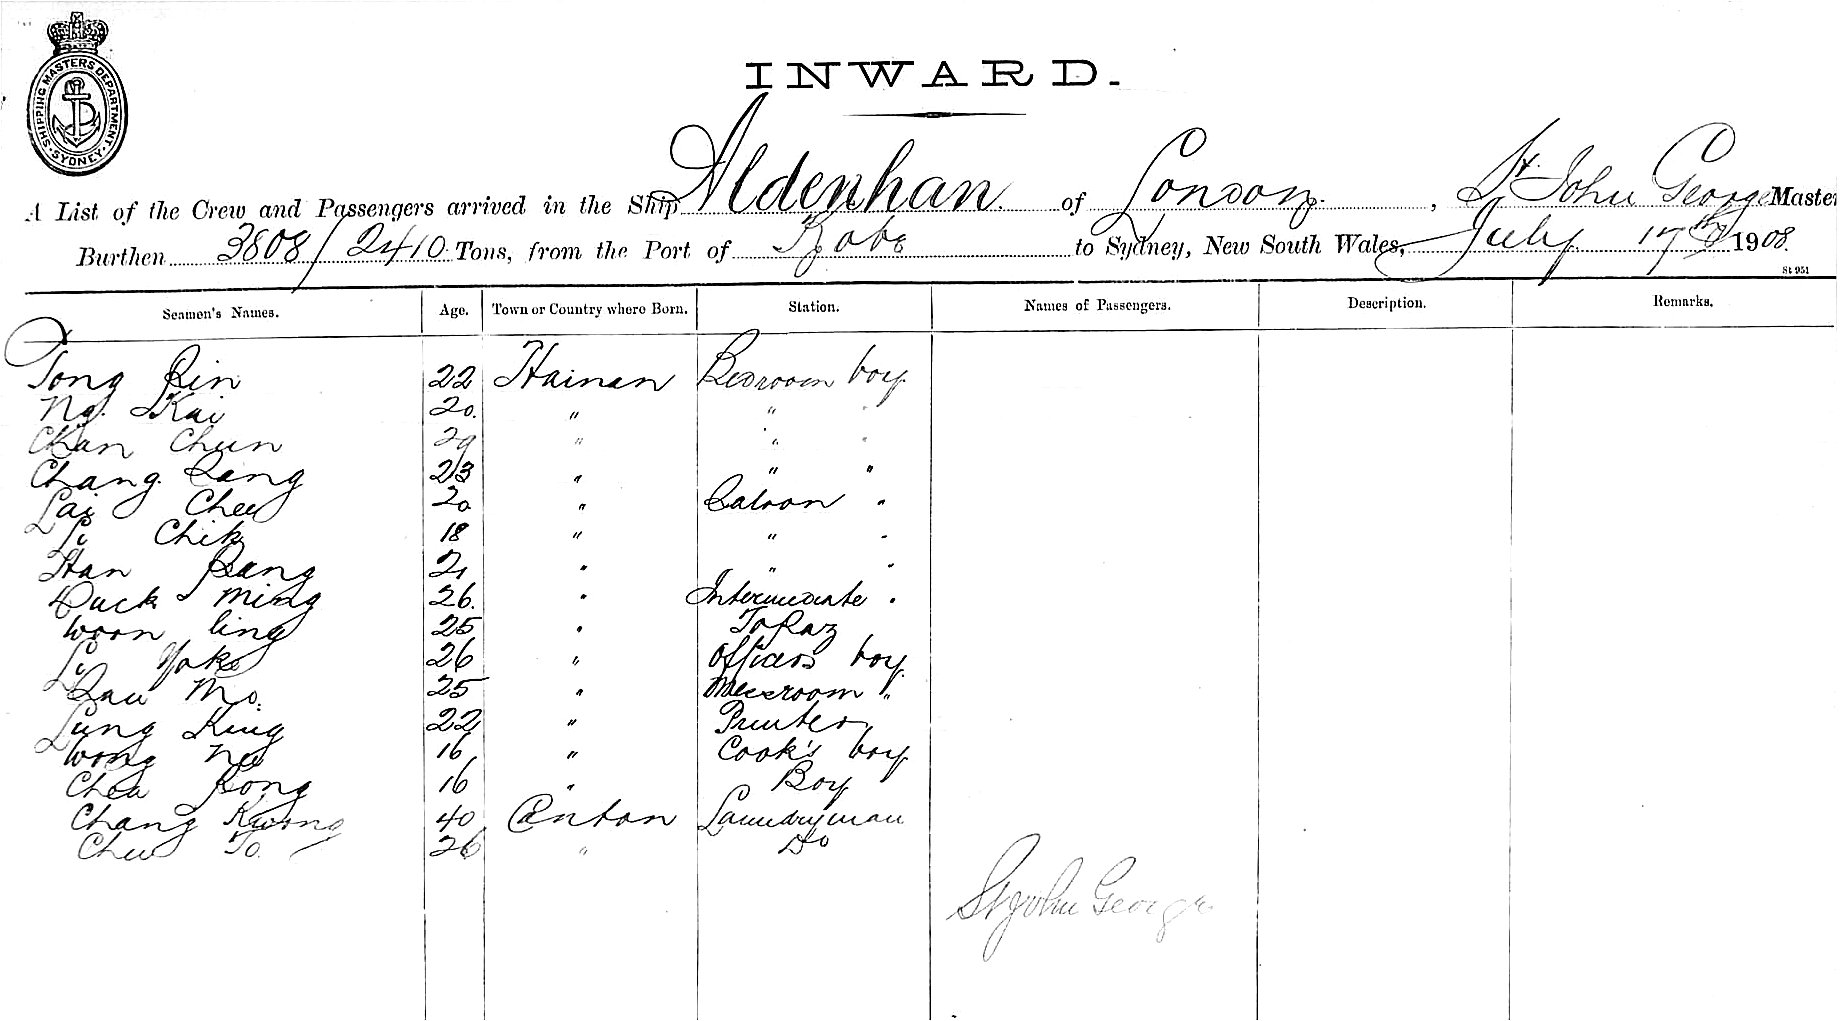 SHIPPING MASTERS DEPARTMENT. SYDNEY.
INWARD.
A List of the Crew and Passengers arrived in the Ship Aldenhan. of London. , St. John George Master
Burthen 3808/2410 Tons, from the Port of Kobe to Sydney, New South Wales, July 17th 1908.
St 951
Seamen's Names. Age. Town or Country where Born. Station. Names of Passengers. Description. Remarks.
Tong Sin 22 Hainan Bedroom boy.
Ng. Kai 20. " " "
Chan Chun 29 " " "
Chang Sang 23 " " "
Lai Chee 20 " Saloon "
Li Chik 18 " " "
Han Bang 21 " " "
Duck Ming 26. " Intermediate "
Woon ling 25 " Topaz
Li Yok 26 " Officers boy.
Sau Mo. 25 " Messroom "
Lung King 22 " Printer
Wong 16 " Cook's boy
Chea Bong 16 " Boy
Chang Kwong 40 Canton Laundryman
Chu To. 26 " Do
St John George